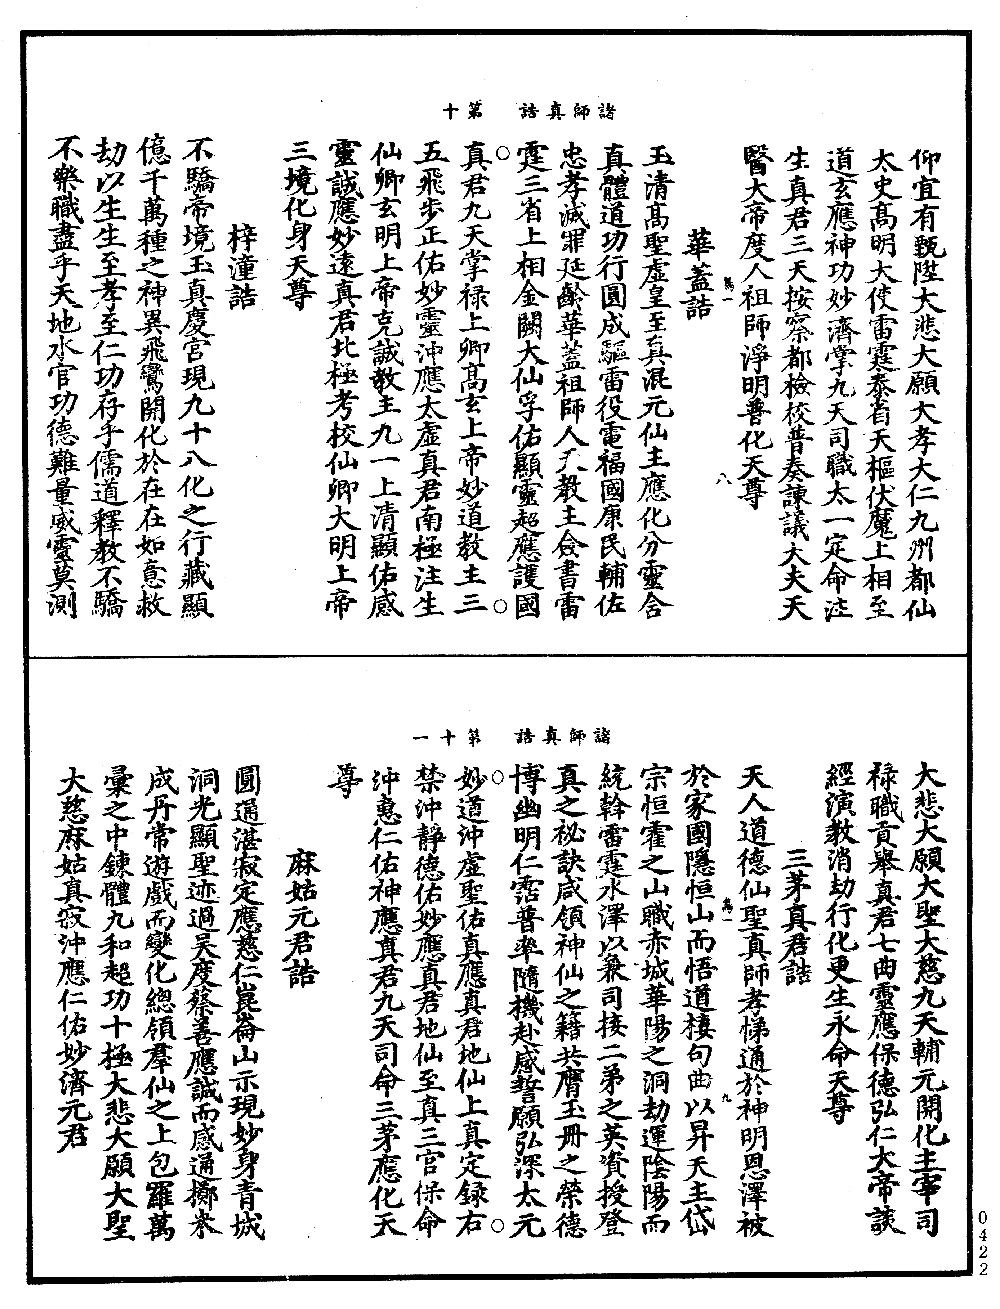 諸師真誥　第十
仰宜有甄陞大悲大願大孝大仁九州都仙
太史高明大使雷霆泰省天樞伏魔上相至
道玄應神功妙濟掌九天司職太一定命注
生真君三天按察都檢校普奏諫議大夫天
醫大帝度人祖師淨明普化天尊
華蓋誥
玉清高聖虛皇至真混元仙主應化分靈合
真體道功行圓成驅雷役電福國康民輔佐
忠孝滅罪延齡華蓋祖師人天教主僉書雷
霆三省上相金闕大仙孚佑顯靈超應護國
真君九天掌祿上卿高玄上帝妙道教主三
五飛步正佑妙靈沖應太虛真君南極注生
仙卿玄明上帝克誠教主九一上清顯佑感
靈誠應妙遠真君北極考校仙卿大明上帝
三境化身天尊
梓潼誥
不驕帝境玉真慶宮現九十八化之行藏顯
億千萬種之神異飛鸞開化於在在如意救
劫以生生至孝至仁功存乎儒道釋教不驕
不樂職盡乎天地水官功德難量威靈莫測
諸師真誥　第十一
大悲大願大聖大慈九天輔元開化主宰司
祿職貢舉真君七曲靈應保德弘仁大帝談
經演教消劫行化更生永命天尊
三茅真君誥
天人道德仙聖真師孝悌通於神明恩澤被
於家國隱恒山而悟道棲句曲以昇天主岱
宗恒霍之山職赤城華陽之洞劫運陰陽而
統斡雷霆水澤以兼司接二弟之英資授登
真之祕訣咸領神仙之籍共膺玉冊之榮德
博幽明仁霑普率隨機赴感誓願弘深太元
妙道沖虛聖佑真應真君地仙上真定錄右
禁沖靜德佑妙應真君地仙至真三官保命
沖惠仁佑神應真君九天司命三茅應化天
尊
麻姑元君誥
圓通湛寂定應慈仁崑崙山示現妙身青城
洞光顯聖迹過吳度蔡善應誠而感通擲米
成丹常遊戲而變化總領羣仙之上包羅萬
彙之中鍊體九和超功十極大悲大願大聖
大慈麻姑真寂沖應仁佑妙濟元君
0422